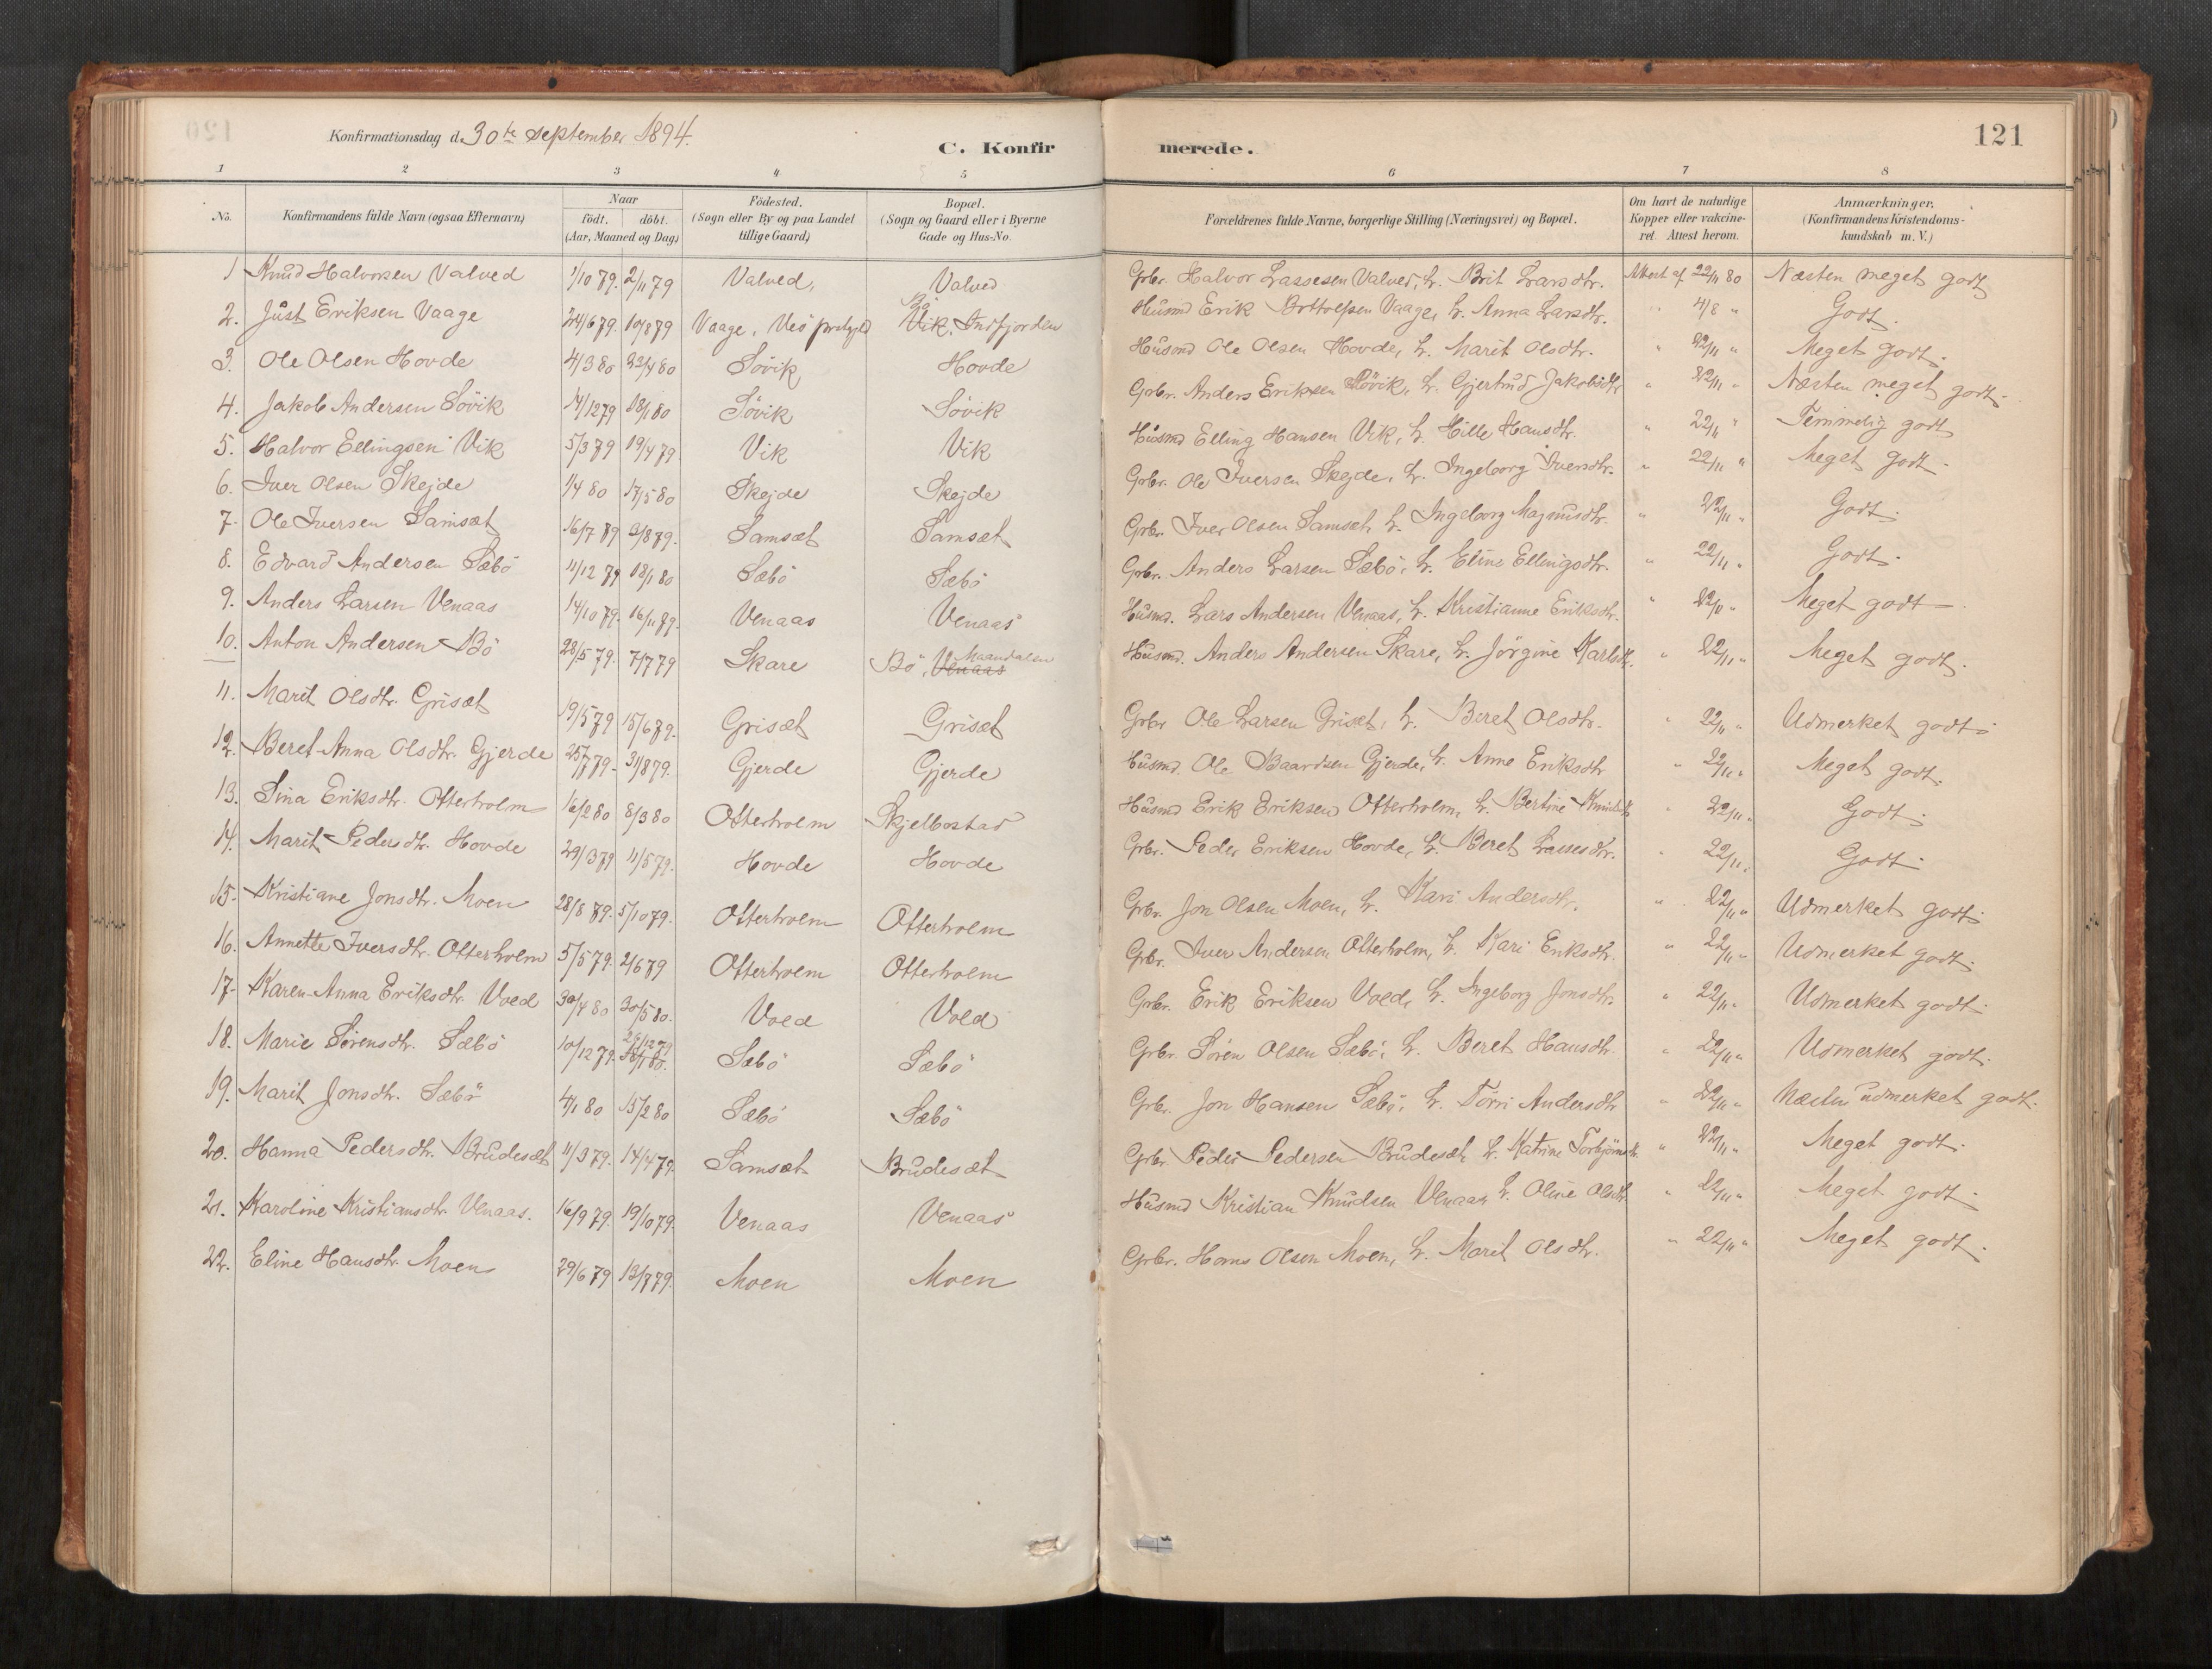 Konfirmationsdag d. 30te September 1894.
C. Konfirmerede.
121
1 2 3 4 5 6 7 8
No. Konfirmandens fulde Navn (ogsaa Efternavn) Naar födt. döbt. (Aar, Maaned og Dag) Födested. (Sogn eller By og paa Landet tillige Gaard) Bopæl. (Sogn og Gaard eller i Byerne Gade og Hus-No. Forældrenes fulde Navne, borgerlige Stilling (Næringsvei) og Bopæl. Om havt de naturlige Kopper eller vakcineret. Attest herom. Anmærkninger. (Konfirmandens Kristendomskundskab m. V.)
1 Knud Halvorsen Valved 1/10 79. 2/11 79 Valved, Valved Grbr. Halvor Lassesen Valved, h. Brit Larsdtr. Attest af 22/11 80 Næsten meget godt
2. Just Eriksen Vaage 24/6 79. 10/8 79 Vaage, Veö prstgjeld Bö Vik, Indfjorden Husmd Erik Bottolfsen Vaage, h. Anna Larsdtr. " 4/8 " Godt.
3. Ole Olsen Hovde 4/3 80 22/4 80 Sövik Hovde Husmd Ole Olsen Hovde, h. Marit Olsdtr. " 22/11 " Meget godt.
4. Jakob Andersen Sövik 14/12 79 18/1 80 Sövik Sövik Grbr. Anders Eriksen Sövik, h. Gjertrud Jakobsdtr " 22/11 " Næsten meget godt.
5. Halvor Ellingsen Vik 5/3 79 19/4 79 Vik Vik Husmd Elling Hansen Vik, h. Hille Hansdtr. " 22/11 " Temmelig godt
6. Iver Olsen Skejde 1/4 80 17/5 80 Skejde Skejde Grbr. Ole Iversen Skejde, h. Ingeborg Iversdtr. " 22/11 " Meget godt.
7. Ole Iversen Samsæt 16/7 79 3/8 79. Samsæt Samsæt Grbr. Iver Olsen Samsæt, h. Ingeborg Magnusdtr. " 22/11 " Godt.
8. Edvard Andersen Sæbö 11/12 79 18/1 80 Sæbö Sæbö Grbr. Anders Larsen Sæbö, h. Eline Ellingsdtr. " 22/11 " Godt.
9. Anders Larsen Venaas 14/10 79. 16/11 79. Venaas Venaas Husmd. Lars Andersen Venaas, h. Kristianne Eriksdtr. " 22/11 " Meget godt.
10. Anton Andersen Bö 28/5 79. 7/7 79 Skare Bö, Venaas Maandalen Husmd. Anders Andersen Skare, h. Jörgine Karlsdtr. " 22/11 " Meget godt.
11. Marit Olsdtr. Grisæt 19/5 79 15/6 79. Grisæt Grisæt Grbr Ole Larsen Grisæt, h. Beret Olsdtr. " 22/11 " Udmerket godt.
12. Beret-Anna Olsdtr. Gjerde 25/7 79. 31/8 79. Gjerde Gjerde Husmd. Ole Baardsen Gjerde, h. Anne Eriksdtr " 22/11 " Meget godt.
13. Sina Eriksdtr. Otterholm 16/2 80 8/3 80 Otterholm Skjelbostad Husmd Erik Eriksen Otterholm, h. Bertine Knudsdtr " 22/11 " Godt.
14. Marit Pedersdtr. Hovde 29/3 79 11/5 79. Hovde Hovde Grbr. Peder Eriksen Hovde, h. Beret Lassesdtr. " 22/11 " Godt.
15. Kristiane Jonsdtr. Moen 28/8 79. 5/10 79. Otterholm Otterholm Grbr. Jon Olsen Moen, h. Kari Andersdtr. " 22/11 " Udmerket godt.
16. Annette Iversdtr. Otterholm 5/5 79. 2/6 79 Otterholm Otterholm Grbr. Iver Andersen Otterholm, h. Kari Eriksdtr. " 22/11 " Udmerket godt.
17. Karen-Anna Eriksdtr. Vold 30/4 80 30/5 80. Vold Vold Grbr. Erik Eriksen Vold, h. Ingeborg Jonsdtr. " 22/11 " Udmerket godt.
18. Marie Sörensdtr. Sæbö 10/12 79. 26/12 79 Sæbö Sæbö Grbr. Sören Olsen Sæbö, h. Beret Hansdtr. " 22/11 " Udmerket godt.
19. Marit Jonsdtr. Sæbö 4/1 80 15/2 80 Sæbö Sæbö Grbr. Jon Hansen Sæbö, h. Törri Andersdtr " 22/11 " Næsten udmerket godt.
20. Hanna Pedersdtr. Brudesæt 11/3 79. 14/4 79. Samsæt Brudesæt Grbr. Peder Pedersen Brudesæt, h. Katrine Torbjörnsdtr. " 22/11 " Meget godt.
21. Karoline Kristiansdtr Venaas. 16/9 79. 19/10 79. Venaas Venaas Husmd Kristian Knudsen Venaas, h. Oline Olsdtr. " 22/11 " Meget godt.
22. Eline Hansdtr. Moen 29/6 79 13/7 79. Moen Moen Grbr. Hans Olsen Moen, h. Marit Olsdtr. " 22/11 " Meget godt.